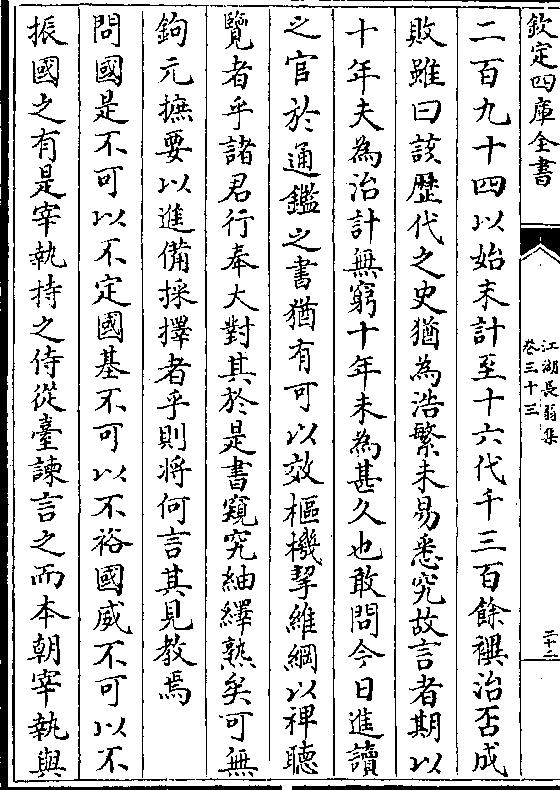 欽定四庫全書
江湖長翁集
卷三十三
二百九十四以始末計至十六代千三百餘禩治否成
敗雖曰該歷代之史猶為浩繁未易悉究故言者期以
十年夫為治計無窮十年未為甚久也敢問今日進讀
之官於通鑑之書猶有可以效樞機挈維綱以裨聽
覽者乎諸君行奉大對其於是書窺究紬繹熟矣可無
鉤元摭要以進備採擇者乎則將何言其見教焉
問國是不可以不定國基不可以不裕國威不可以不
振國之有是宰執持之侍從臺諫言之而本朝宰執與